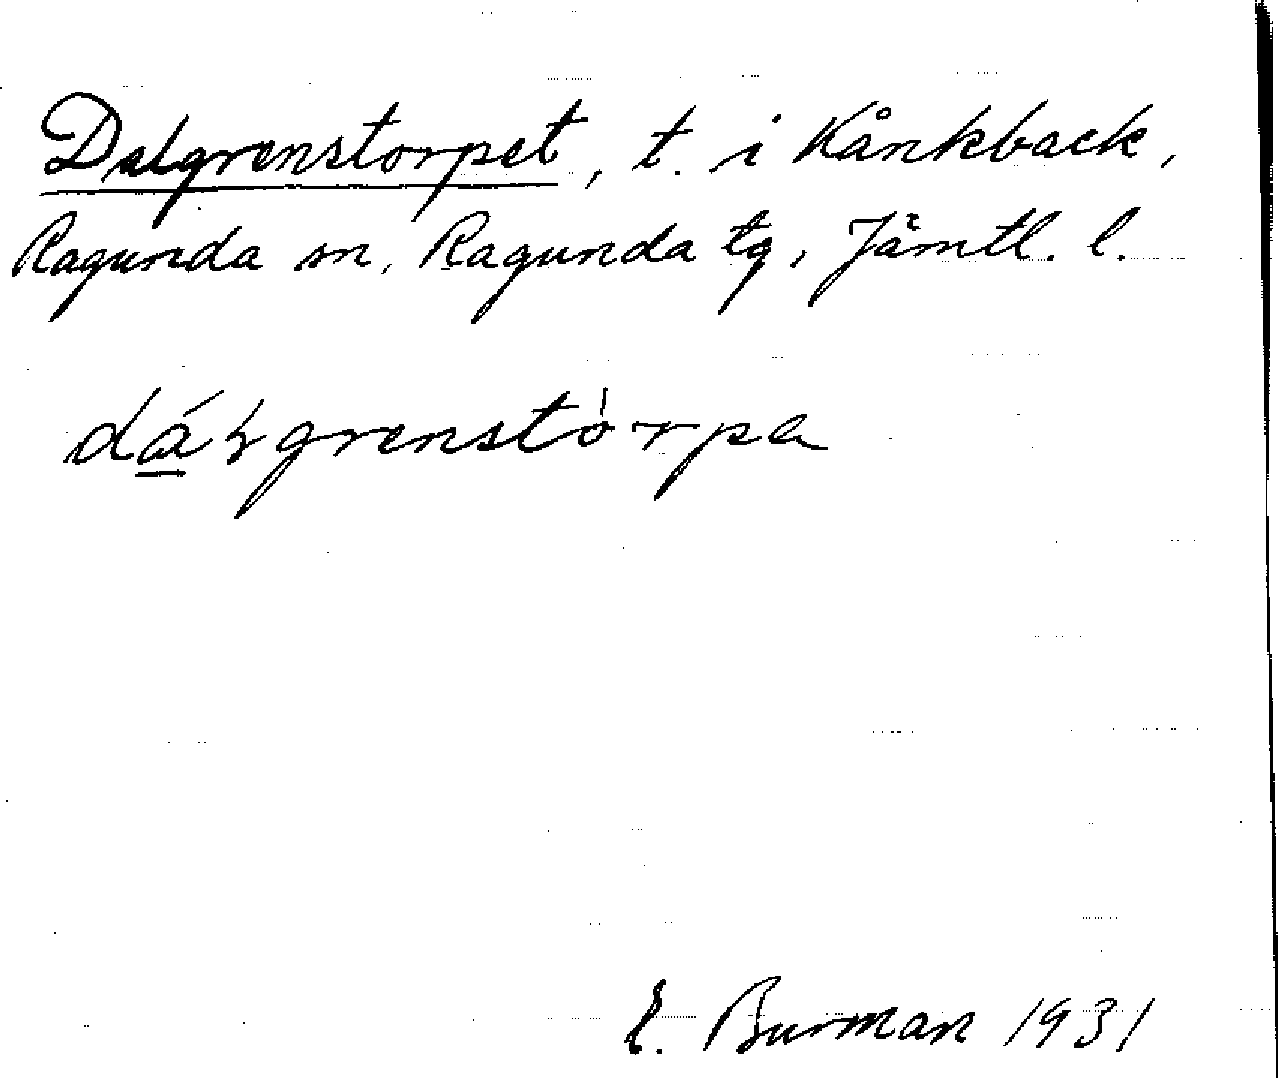 Dalgrenstorpet, t. i Kånkback,
Ragunda sn, Ragunda tg, Jämtl. l.
dálgrenstòrpa
E. Burman 1931